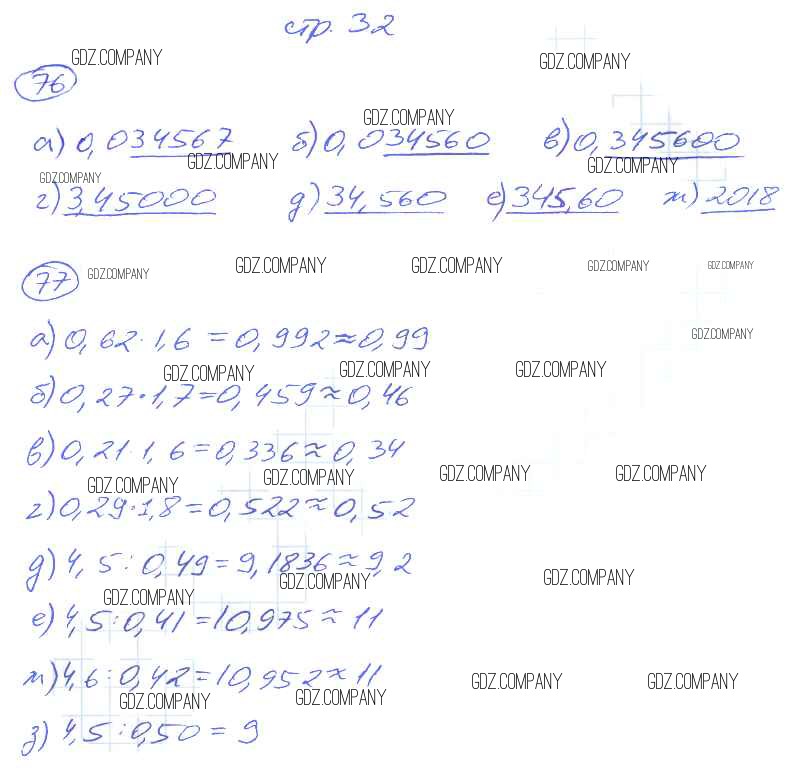 стр. 32
GDZ.COMPANY GDZ.COMPANY
76
GDZ.COMPANY
а) 0,034567 б) 0,034560 в) 0,345600
GDZ.COMPANY GDZ.COMPANY
GDZ.COMPANY
г) 3,45000 д) 34,560 е) 345,60 ж) 2018
77 GDZ.COMPANY GDZ.COMPANY GDZ.COMPANY GDZ.COMPANY GDZ.COMPANY
а) 0,62·1,6=0,992≈0,99 GDZ.COMPANY
GDZ.COMPANY GDZ.COMPANY GDZ.COMPANY
б) 0,27·1,7=0,459≈0,46
в) 0,21·1,6=0,336≈0,34
GDZ.COMPANY GDZ.COMPANY GDZ.COMPANY GDZ.COMPANY
г) 0,29·1,8=0,522≈0,52
д) 4,5:0,49=9,1836≈9,2
GDZ.COMPANY GDZ.COMPANY GDZ.COMPANY
е) 4,5:0,41=10,975≈11
ж) 4,6:0,42=10,952≈11
GDZ.COMPANY GDZ.COMPANY GDZ.COMPANY GDZ.COMPANY
з) 4,5:0,50=9